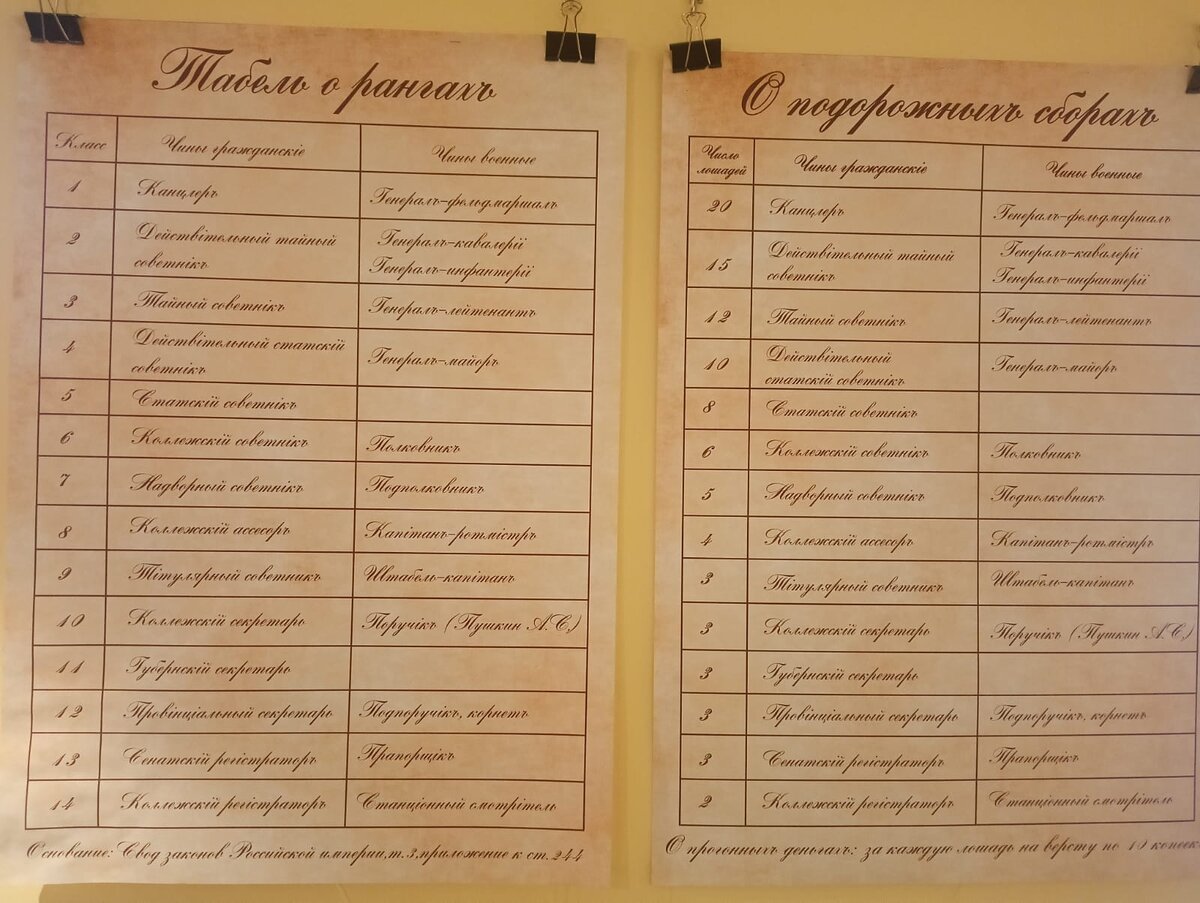 Табель о рангахъ
Класс Чины гражданскіе Чины военные
1 Канцлеръ Генералъ-фельдмаршалъ
2 Действітельный тайный советнікъ Генералъ-кавалеріі
Генералъ-инфантеріі
3 Тайный советнікъ Генералъ-лейтенантъ
4 Действітельный статскій советнікъ Генералъ-майоръ
5 Статскій советнікъ
6 Коллежскій советнікъ Полковникъ
7 Надворный советнікъ Подполковникъ
8 Коллежскій ассесоръ Капітанъ-ротмістръ
9 Тітулярный советникъ Штабель-капітанъ
10 Коллежскій секретарь Поручікъ (Пушкин А.С.)
11 Губернскій секретарь
12 Провінціальный секретарь Подпоручікъ, корнетъ
13 Сенатскій регістраторъ Прапорщікъ
14 Коллежскій регістраторъ Станціонный смотрітель
Основание: Свод законов Российской империи,т.3,приложение к ст.244
О подорожныхъ сборахъ
Число лошадей Чины гражданскіе Чины военные
20 Канцлеръ Генералъ-фельдмаршалъ
15 Действітельный тайный советнікъ Генералъ-кавалеріі
Генералъ-инфантеріі
12 Тайный советнікъ Генералъ-лейтенантъ
10 Действітельный статскій советнікъ Генералъ-майоръ
8 Статскій советнікъ
6 Коллежскій советнікъ Полковникъ
5 Надворный советнікъ Подполковникъ
4 Коллежскій ассесоръ Капітанъ-ротмістръ
3 Тітулярный советникъ Штабель-капітанъ
3 Коллежскій секретарь Поручікъ (Пушкин А.С.)
3 Губернскій секретарь
3 Провінціальный секретарь Подпоручікъ, корнетъ
3 Сенатскій регістраторъ Прапорщікъ
2 Коллежскій регістраторъ Станціонный смотрітель
О прогонныхъ деньгахъ: за каждую лошадь на версту по 10 копеек